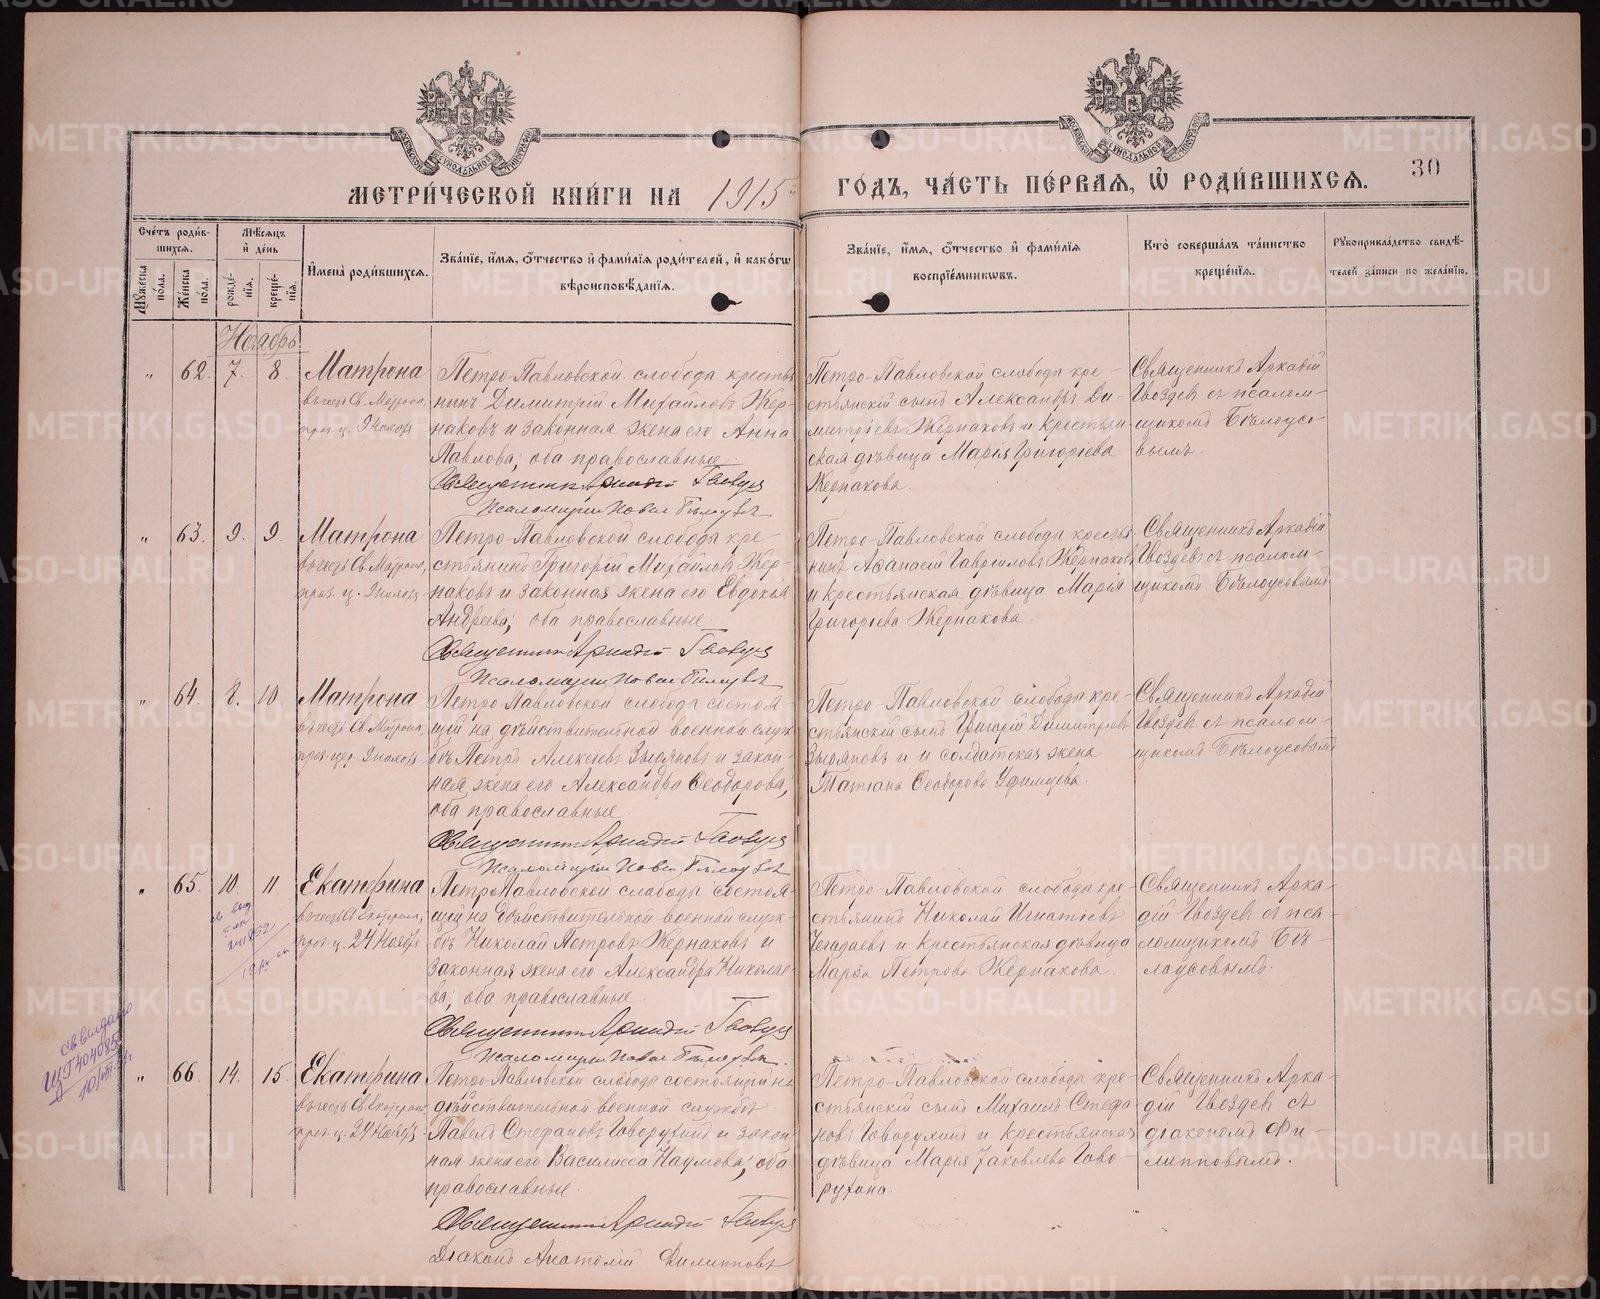 МЕТРИ́ЧЕСКОЙ КНИ́ГИ НА 1915 й ГО́ДЪ, ЧА́СТЬ ПЕ́РВАЯ, Ѽ РОДИ́ВШИХСЯ.
30
Сче́тъ роди́в-
шихся.
Му́жеска по́ла.
Же́нска по́ла.
Мѣ́сяцъ и де́нь
рожде́-
нія.
креще́-
нія.
И́мена роди́вшихся.
Зва́ніе, и́мя, о́тчество и фами́лія роди́телей, и како́гѡ
вѣроисповѣ́данія.
Зва́ніе, и́мя, о́тчество и фами́лія
воспріе́мникѡвъ.
Кто̀ соверша́лъ та́инство
креще́нія.
Рꙋкоприкла́дство свидѣ́-
телей за́писи по жела́нію.
Ноябрь
„ 62. 7. 8.
Матрона
въ честь Св. Матроны,
пр. ц. 9 Ноября
Петро-Павловской слободы кресть-
нинъ Димитрій Михайловъ Жер-
наковъ и законная жена его Анна
Павлова; оба православные.
Священникъ Аркадій Гвоздевъ
Псаломщикъ Павелъ Бѣлоусовъ
Петро-Павловской слободы кре-
стьянскій сынъ Александръ Ди-
митріевъ Жернаковъ и крестьян-
ская дѣвица Марія Григоріева
Жернакова.
Священникъ Аркадій
Гвоздевъ съ псалом-
щикомъ Бѣлоусо-
вымъ.
„ 63. 9. 9.
Матрона
въ честь Св. Матроны,
праз. ц. 9 Ноября
Петро-Павловской слободы кре-
стьянинъ Григорій Михайловъ Жер-
наковъ и законная жена его Евдокія
Андреева; оба православные.
Священникъ Аркадій Гвоздевъ
Псаломщикъ Павелъ Бѣлоусовъ
Петро-Павловской слободы кресть-
нинъ Аѳанасій Гавріиловъ Жернаковъ
и крестьянская дѣвица Марія
Григоріева Жернакова.
Священникъ Аркадій
Гвоздевъ съ псалом-
щикомъ Бѣлоусовымъ
„ 64. 8. 10.
Матрона
въ честь Св. Матроны,
праз. цер. 9 Ноября
Петро-Павловской слободы состоя-
щій на дѣйствительной военной служ-
бѣ Петръ Алексіевъ Зыряновъ и закон-
ная жена его Александра Ѳеодорова,
оба православные
Священникъ Аркадій Гвоздевъ
Псаломщикъ Павелъ Бѣлоусовъ
Петро-Павловской слободы кре-
стьянскій сынъ Григорій Димитріевъ
Зыряновъ и и солдатская жена
Татіана Ѳеодорова Уфимцева.
Священникъ Аркадій
Гвоздевъ съ псалом-
щикомъ Бѣлоусовымъ
„ 65. 10. 11.
Екатерина
въ честь Св. Екатерины,
праз. ц. 24 Ноября
Петро-Павловской слободы состоя-
щій на дѣйствительной военной служ-
бѣ Николай Петровъ Жернаковъ и
законная жена его Александра Николае-
ва; оба православные
Священникъ Аркадій Гвоздевъ
Псаломщикъ Павелъ Бѣлоусовъ
Петро-Павловской слободы кре-
стьянинъ Николай Игнатіевъ
Чегадаевъ и крестьянская дѣвица
Марѳа Петрова Жернакова.
Священникъ Арка-
дій Гвоздевъ съ пса-
ломщикомъ Бѣ-
лоусовымъ.
„ 66. 14. 15.
Екатерина
въ честь Св. Екатерины,
праз. ц. 24 Ноября
Петро-Павловской слободы состоящій на
дѣйствительной военной службѣ
Павелъ Стефановъ Говорухинъ и закон-
ная жена его Василисса Наумова; оба
православные.
Священникъ Аркадій Гвоздевъ
Діаконъ Анатолій Филипповъ
Петро-Павловской слободы кре-
стьянскій сынъ Михаилъ Стефа
новъ Говорухинъ и крестьянская
дѣвица Марія Іаковлева Гово-
рухина.
Священникъ Арка-
дій Гвоздевъ съ
діакономъ Фи-
липповымъ.
METRIKI.GASO-URAL.RU